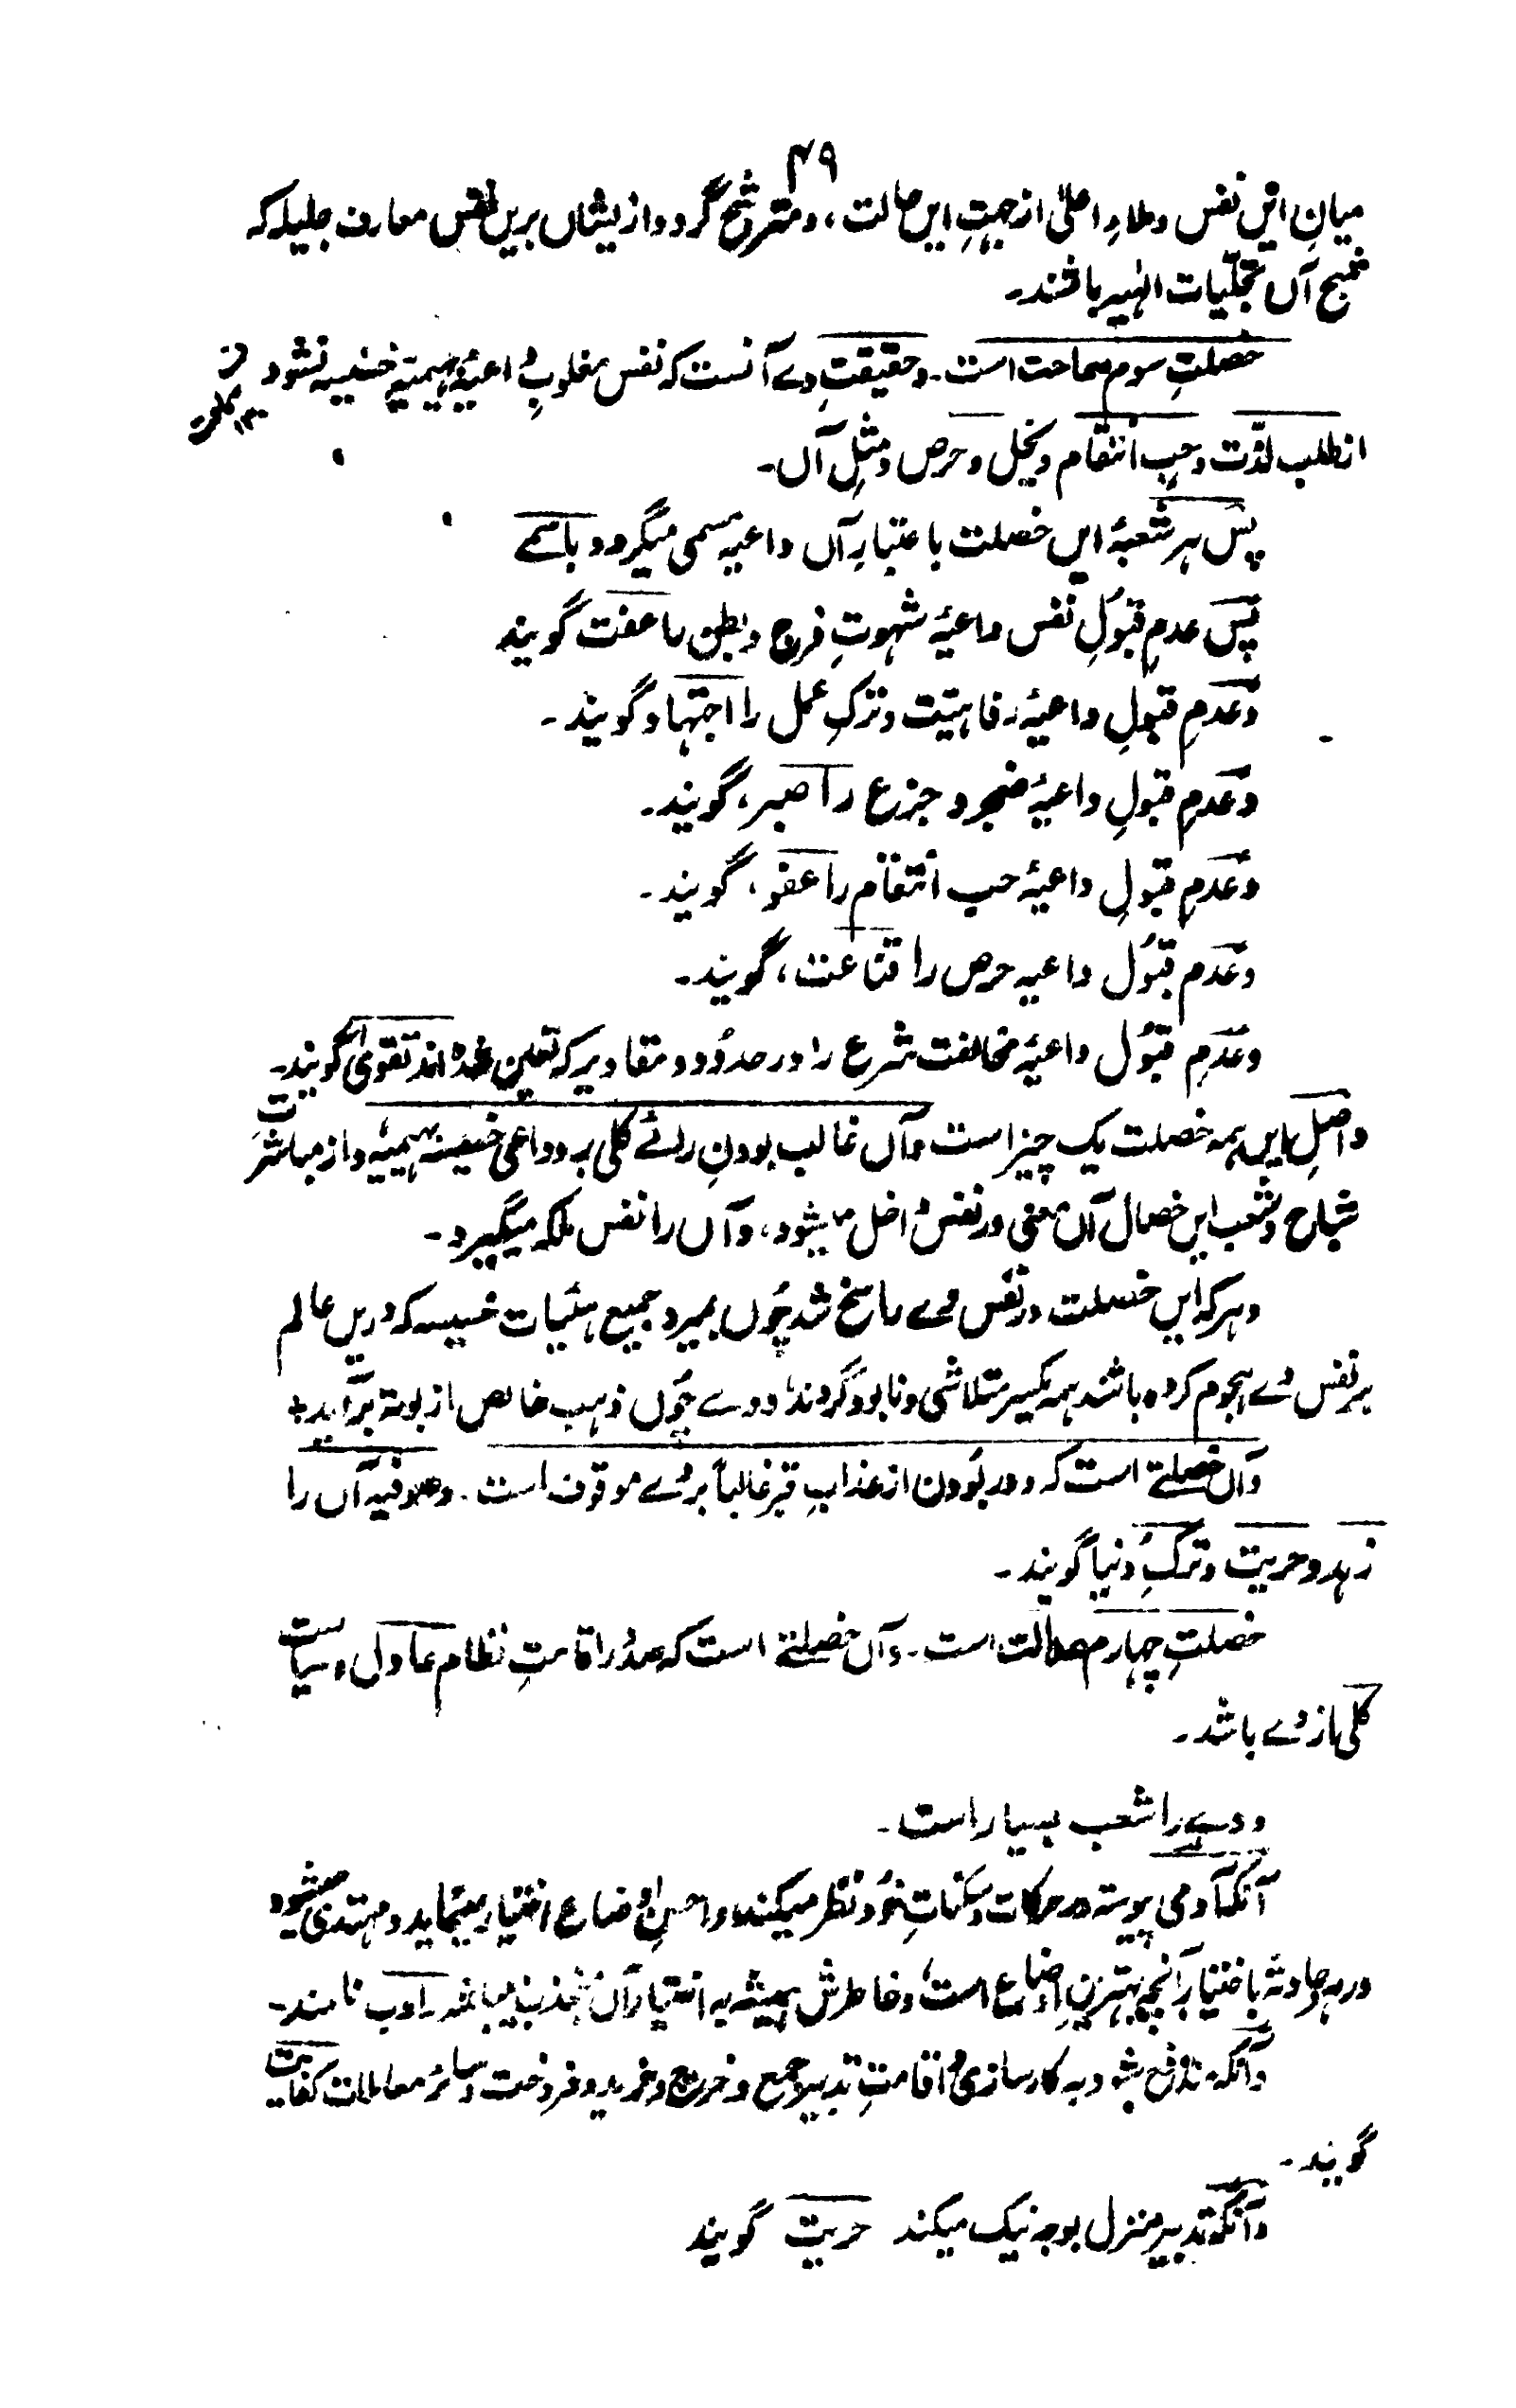 ۴۹
میانِ ایں نفس و ملاءِ اعلیٰ از جہتِ ایں حالت، و مترشح گردد از یشاں بریں نفس معارف جلیلہ کہ
شبح آں تجلّیات الٰہیہ باشند۔
خصلتِ سوم سماحت است۔ و حقیقتِ وے آنست کہ نفس مغلوبِ داعیۂ بہیمیۂ خسیسہ نشود
از طلب لذّت و حبِ انتقام و بخل و حرص و مثلِ آں۔
پس ہر شعبۂ ایں خصلت باعتبارِ آں داعیہ مسمی میگردد باسمے
پس عدمِ قبولِ نفس داعیۂ شہوتِ فرج و بطن را عفت گویند
و عدمِ قبولِ داعیۂ رفاہیت و ترکِ عمل را اجتہاد گویند۔
و عدمِ قبولِ داعیۂ ضجر و جزع را صبر، گویند۔
و عدمِ قبولِ داعیۂ حب انتقام را عفو، گویند۔
و عدم قبول داعیہ حرص را قناعت، گویند۔
و عدمِ قبول داعیۂ مخالفت شرع را در حدود و مقادیر کہ تعین شدہ اند تقویٰ گویند۔
و اصلِ ایں ہمہ خصلت یک چیز است و آں غالب بودنِ رائے کلی بر دواعی خسیسۂ بہیمیہ و از مباشرتِ
اشباح و شعب ایں خصال آں معنی در نفس داخل میشود، و آں را نفس ملکہ میگیرد۔
و ہر کہ ایں خصلت در نفس وے راسخ شد چوں بمیرد جمیع ہئیات خسیسہ کہ دریں عالم
بر نفس وے ہجوم کردہ باشد ہمہ یکسر متلاشی و نابود گردند و وے چوں ذہب خالص از بوتہ برآید
و آں خصلتے است کہ دور بودن از عذابِ قبر غالباً بر وے موقوف است۔ و صوفیہ آں را
زہد و حریت و ترکِ دنیا گویند۔
خصلتِ چہارم عدالت است۔ و آں خصلتے است کہ صدور اقامتِ نظام عادل و سیاست
کلی از وے باشد۔
و وے را شعب بسیار است۔
آنکہ آدمی پیوستہ در حرکات و سکناتِ خود نظر میکند و احسنِ اوضاع اختیار مینماید و مہتدی میشود
در ہر حادثہ باختیار آنچہ بہترین اوضاع است، و خاطرش ہمیشہ بہ اختیار آں منجذب میباشد ادب نامند۔
و آنکہ شود بہ کارسازی و اقامتِ تدبیر جمع و خرچ و خرید و فروخت و سائر معاملات کفایت
گویند۔
و آنکہ تدبیر منزل بوجہ نیک میکند حریت گویند